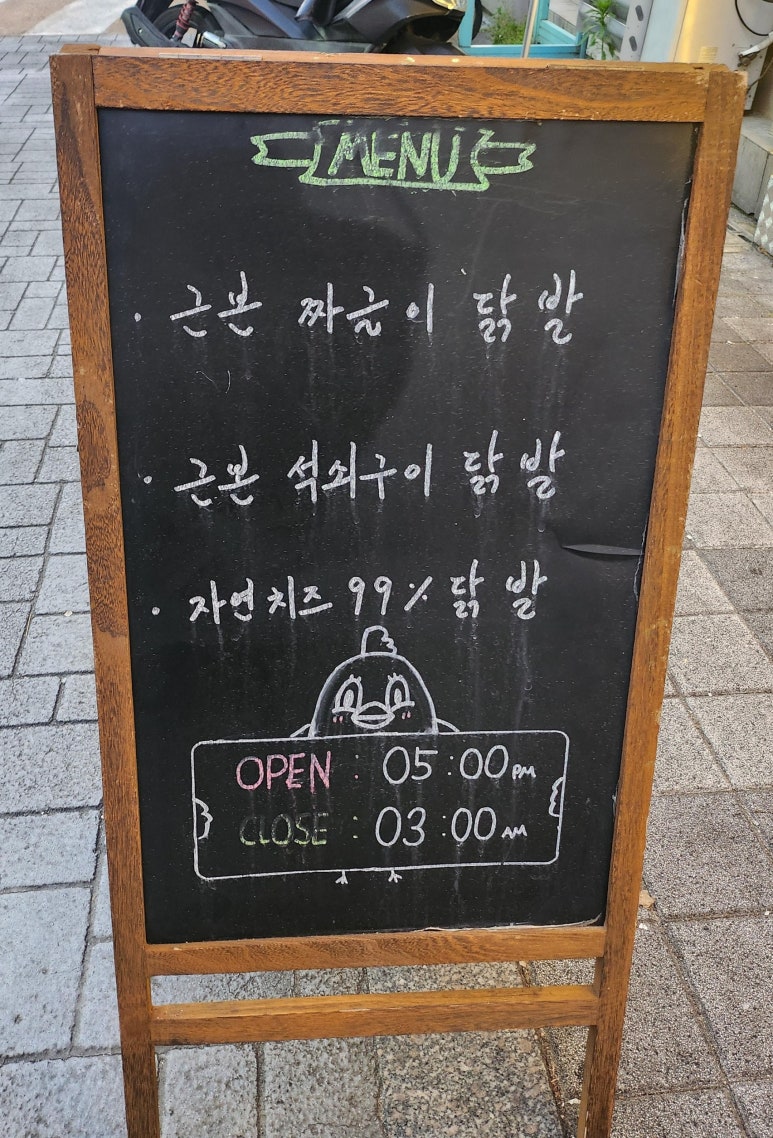 MENU
· 근본 짜글이 닭발
· 근본 석쇠구이 닭발
· 자연치즈 99% 닭발
OPEN : 05:00 PM
CLOSE : 03:00 AM